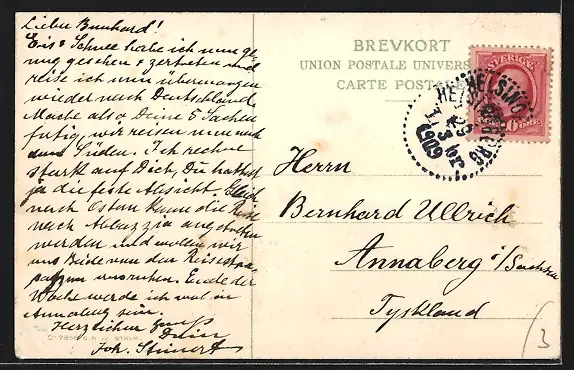 Lieber Bernhard!
Eis & Schnee habe ich nun ge
nug gesehen & zertreten und
reise ich nun übermorgen
wieder nach Deutschland.
Mache also Deine 5 Sachen
fertig, wir reisen nun nach
dem Süden. Ich rechne
stark auf Dich, Du hattest
ja die feste Absicht. Gleich
nach Ostern kann die Reise
nach Abbazzia angetreten
werden und wollen wir
uns Beide von den Reisestra
patzen ausruhen. Ende der
Woche werde ich wol in
Annaberg sein.
Herzlichen Gruß
Dein
Joh.
BREVKORT
UNION POSTALE UNIVERS
CARTE POSTA
SVERIGE
ÖRE
HELSINGBORG
1909
Herrn
Bernhard Ullrich
Annaberg i/Sachsen
Tyskland
3